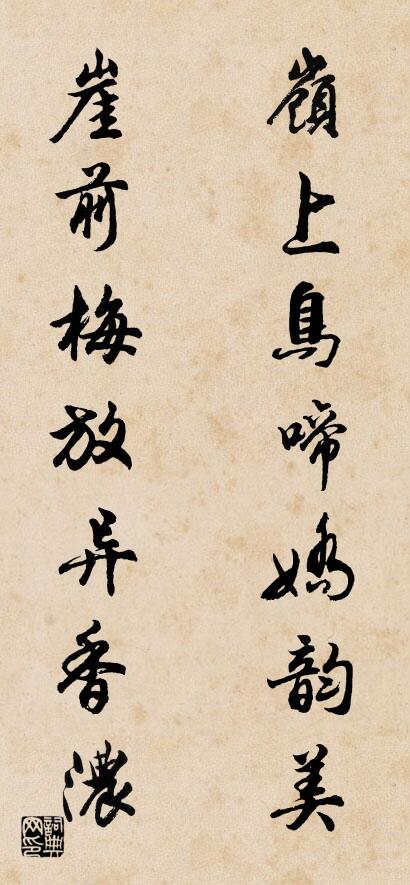 嶺上鳥啼嬌韵美
崖前梅放异香濃
詞典网印